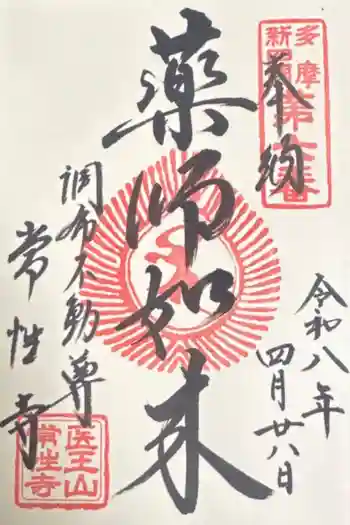 奉納
多摩
新四国
第六番
令和八年
四月廿八日
薬師如来
調布不動尊
常性寺
医王山
常性寺